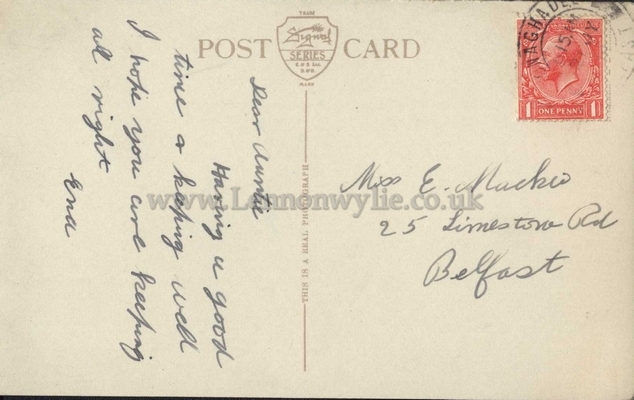 POST CARD
TRADE
Signal
SERIES
MARK
NAGHADEE
ONE PENNY
1 1
Dear Auntie
Having a good
time & keeping well
I hope you are keeping
al right
Ena
THIS IS A REAL PHOTOGRAPH
Miss E. Mackie
25 Limestone Rd
Belfast
www.Lennonwylie.co.uk